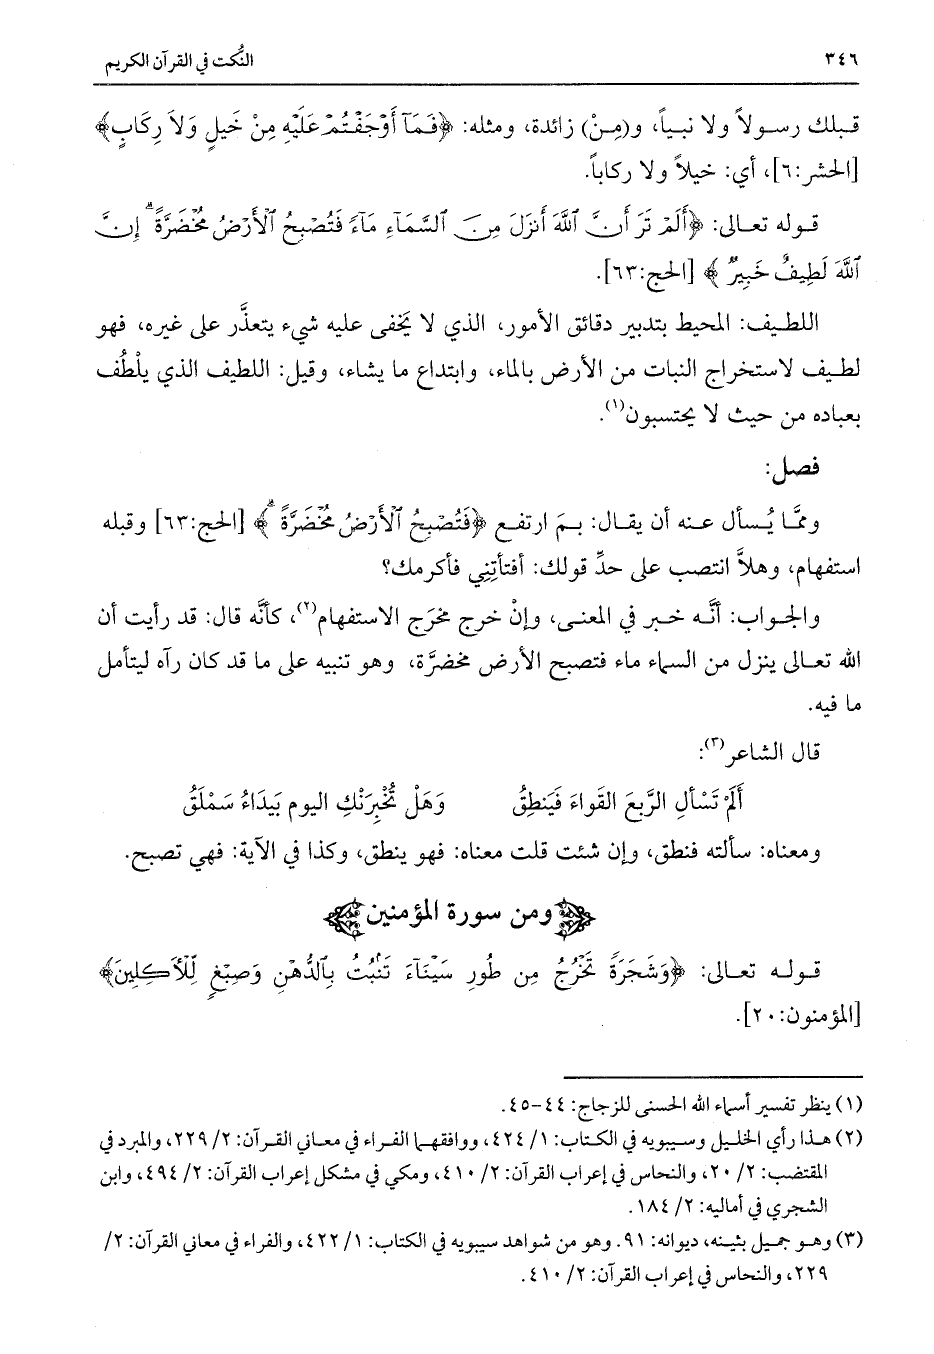 ٣٤٦ النُّكت في القرآن الكريم
قبلك رسولاً ولا نبياً، و(مِنْ) زائدة، ومثله: ﴿فَمَآ أَوْجَفْتُمْ عَلَيْهِ مِنْ خَيْلٍ وَلَا رِكَابٍ﴾
[الحشر:٦]، أي: خيلاً ولا ركاباً.
قوله تعالى: ﴿أَلَمْ تَرَ أَنَّ ٱللَّهَ أَنزَلَ مِنَ ٱلسَّمَآءِ مَآءً فَتُصْبِحُ ٱلْأَرْضُ مُخْضَرَّةً ۗ إِنَّ
ٱللَّهَ لَطِيفٌ خَبِيرٌ﴾ [الحج:٦٣].
اللطيف: المحيط بتدبير دقائق الأمور، الذي لا يَخفى عليه شيء يتعذَّر على غيره، فهو
لطيف لاستخراج النبات من الأرض بالماء، وابتداع ما يشاء، وقيل: اللطيف الذي يلْطُف
بعباده من حيث لا يحتسبون(١).
فصل:
وممَّا يُسأل عنه أن يقال: بمَ ارتفع ﴿فَتُصْبِحُ ٱلْأَرْضُ مُخْضَرَّةً ۗ﴾ [الحج:٦٣] وقبله
استفهام، وهلاَّ انتصب على حدِّ قولك: أفتأتِنِي فأكرمك؟
والجواب: أنَّه خبر في المعنى، وإنْ خرج مخرَج الاستفهام(٢)، كأنَّه قال: قد رأيت أن
الله تعالى ينزل من السماء ماء فتصبح الأرض مخضرَّة، وهو تنبيه على ما قد كان رآه ليتأمل
ما فيه.
قال الشاعر(٣):
أَلَمْ تَسْأَلِ الرَّبعَ القَواءَ فَيَنطِقُ وَهَلْ تُخْبِرَنْكِ اليوم بَيدَاءُ سَمْلَقُ
ومعناه: سألته فنطق، وإن شئت قلت معناه: فهو ينطق، وكذا في الآية: فهي تصبح.
ومن سورة المؤمنين
قوله تعالى: ﴿وَشَجَرَةً تَخْرُجُ مِن طُورِ سَيْنَآءَ تَنۢبُتُ بِٱلدُّهْنِ وَصِبْغٍ لِّلْآكِلِينَ﴾
[المؤمنون:٢٠].
(١) ينظر تفسير أسماء الله الحسنى للزجاج: ٤٤-٤٥.
(٢) هذا رأي الخليل وسيبويه في الكتاب: ١/ ٤٢٤، ووافقهما الفراء في معاني القرآن: ٢/ ٢٢٩، والمبرد في
المقتضب: ٢/ ٢٠، والنحاس في إعراب القرآن: ٢/ ٤١٠، ومكي في مشكل إعراب القرآن: ٢/ ٤٩٤، وابن
الشجري في أماليه: ٢/ ١٨٤.
(٣) وهو جميل بثينه، ديوانه: ٩١. وهو من شواهد سيبويه في الكتاب: ١/ ٤٢٢، والفراء في معاني القرآن: ٢/
٢٢٩، والنحاس في إعراب القرآن: ٢/ ٤١٠.